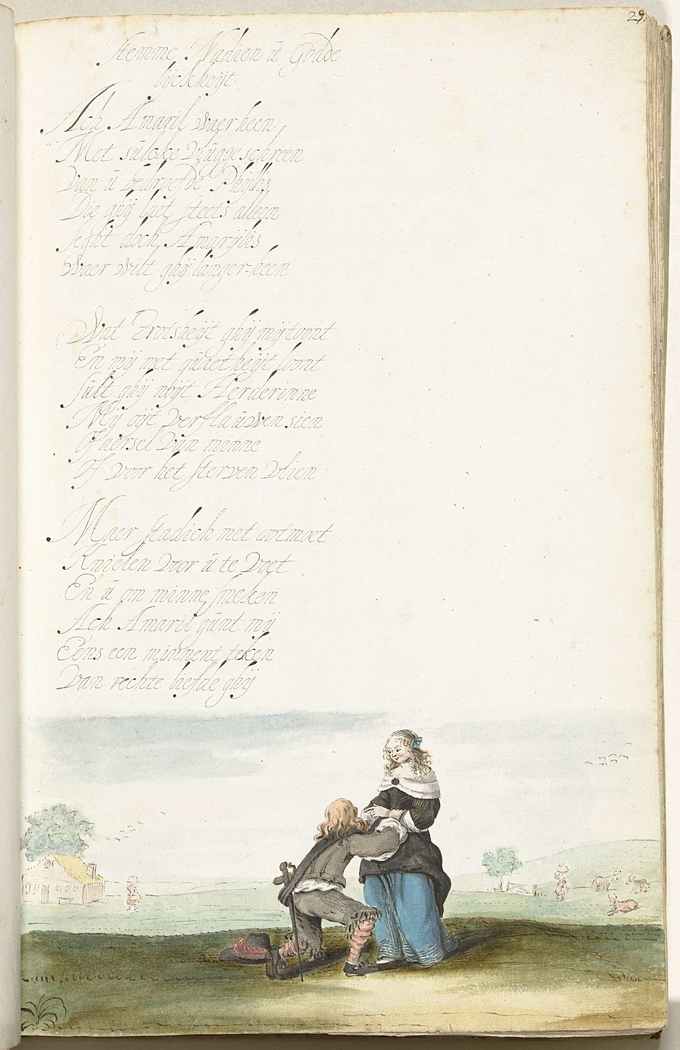 29.
Stemme Nadien u Godde
lyckheyt
Ach Amaril waer heen
Met sulcke Rugge schreen
Van u bedroefde Phillis
Die ghy laet steets alleen
Seght doch Amaryllis
Waer wilt ghy langer heen
Wat Trotsheyt ghy my toont
En my met quaetheyt loont
Sult ghy noyt Herderinne
My oyt verflauwen sien
of aersel van minne
Of voor het sterven vlien
Maer stadich met ootmoet
Knielen voor u te voet
En u om minne smeken
Ach Amaril gunt my
Eens een minnent teken
Van rechte liefde ghy